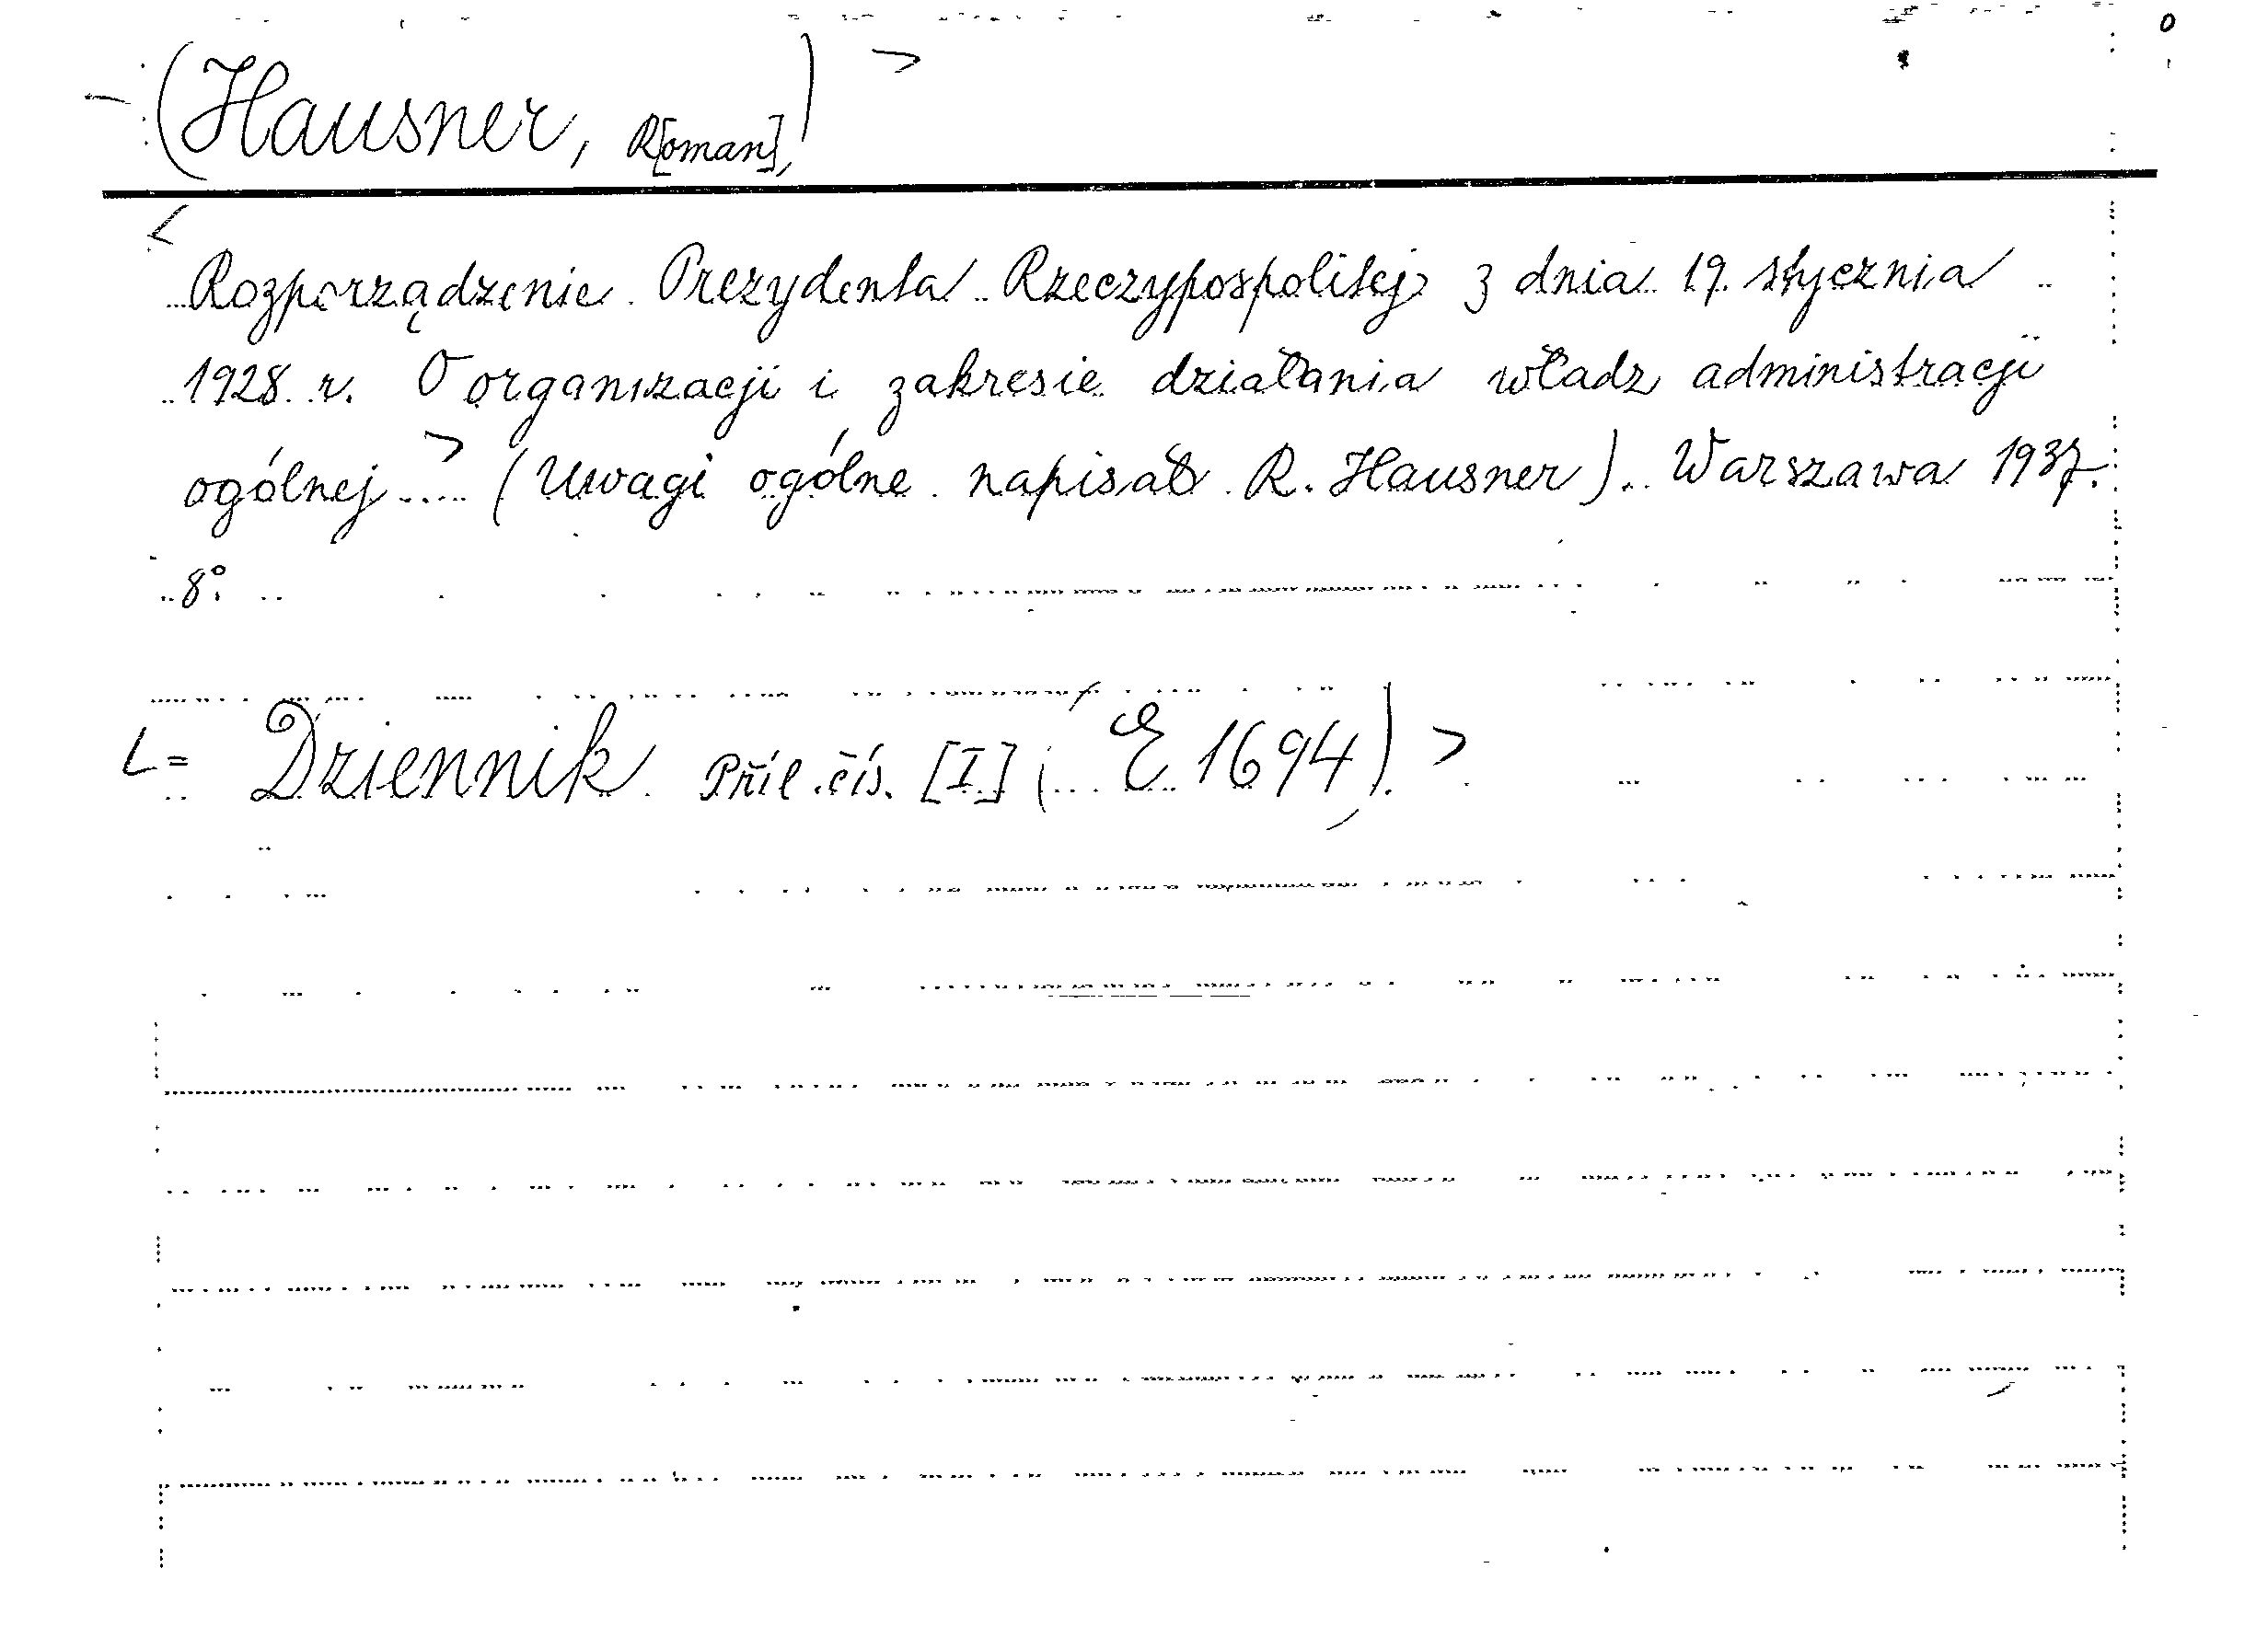 (Hausner, R[oman],) >
< Rozporządzenie Prezydenta Rzeczypospolitej z dnia 19. stycznia
1928 r. O organizacji i zakresie działania władz administracji
ogólnej > ... (Uwagi ogólne napisał R. Hausner). Warszawa 1937.
8°.
< = Dziennik Příl. čís. [I] (E 1694). >